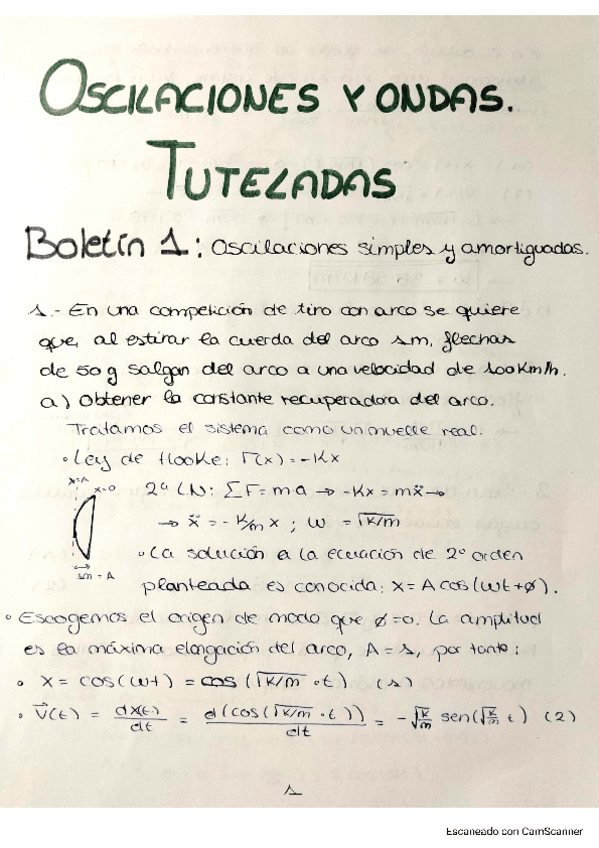 OSCILACIONES Y ONDAS.
TUTELADAS
Boletín 1: Oscilaciones simples y amortiguadas.
1.- En una competición de tiro con arco se quiere
que, al estirar la cuerda del arco 1m, flechas
de 50 g salgan del arco a una velocidad de 100Km/h.
a) Obtener la constante recuperadora del arco.
Tratamos el sistema como un muelle real.
• Ley de Hooke: F(x) = -Kx
x=A x=0
2ª LN: ΣF = ma → -Kx = mẍ →
→ ẍ = - K/m x ; ω = √K/m
• La solución a la ecuación de 2º orden
1m = A
planteada es conocida: x = A cos(ωt+φ).
• Escogemos el origen de modo que φ=0. La amplitud
es la máxima elongación del arco, A = 1, por tanto:
• X = cos(ωt) = cos (√K/m · t) (1)
• V⃗(t) = dx(t)/dt = d(cos(√K/m · t))/dt = -√K/m sen(√K/m t) (2)
1
Escaneado con CamScanner